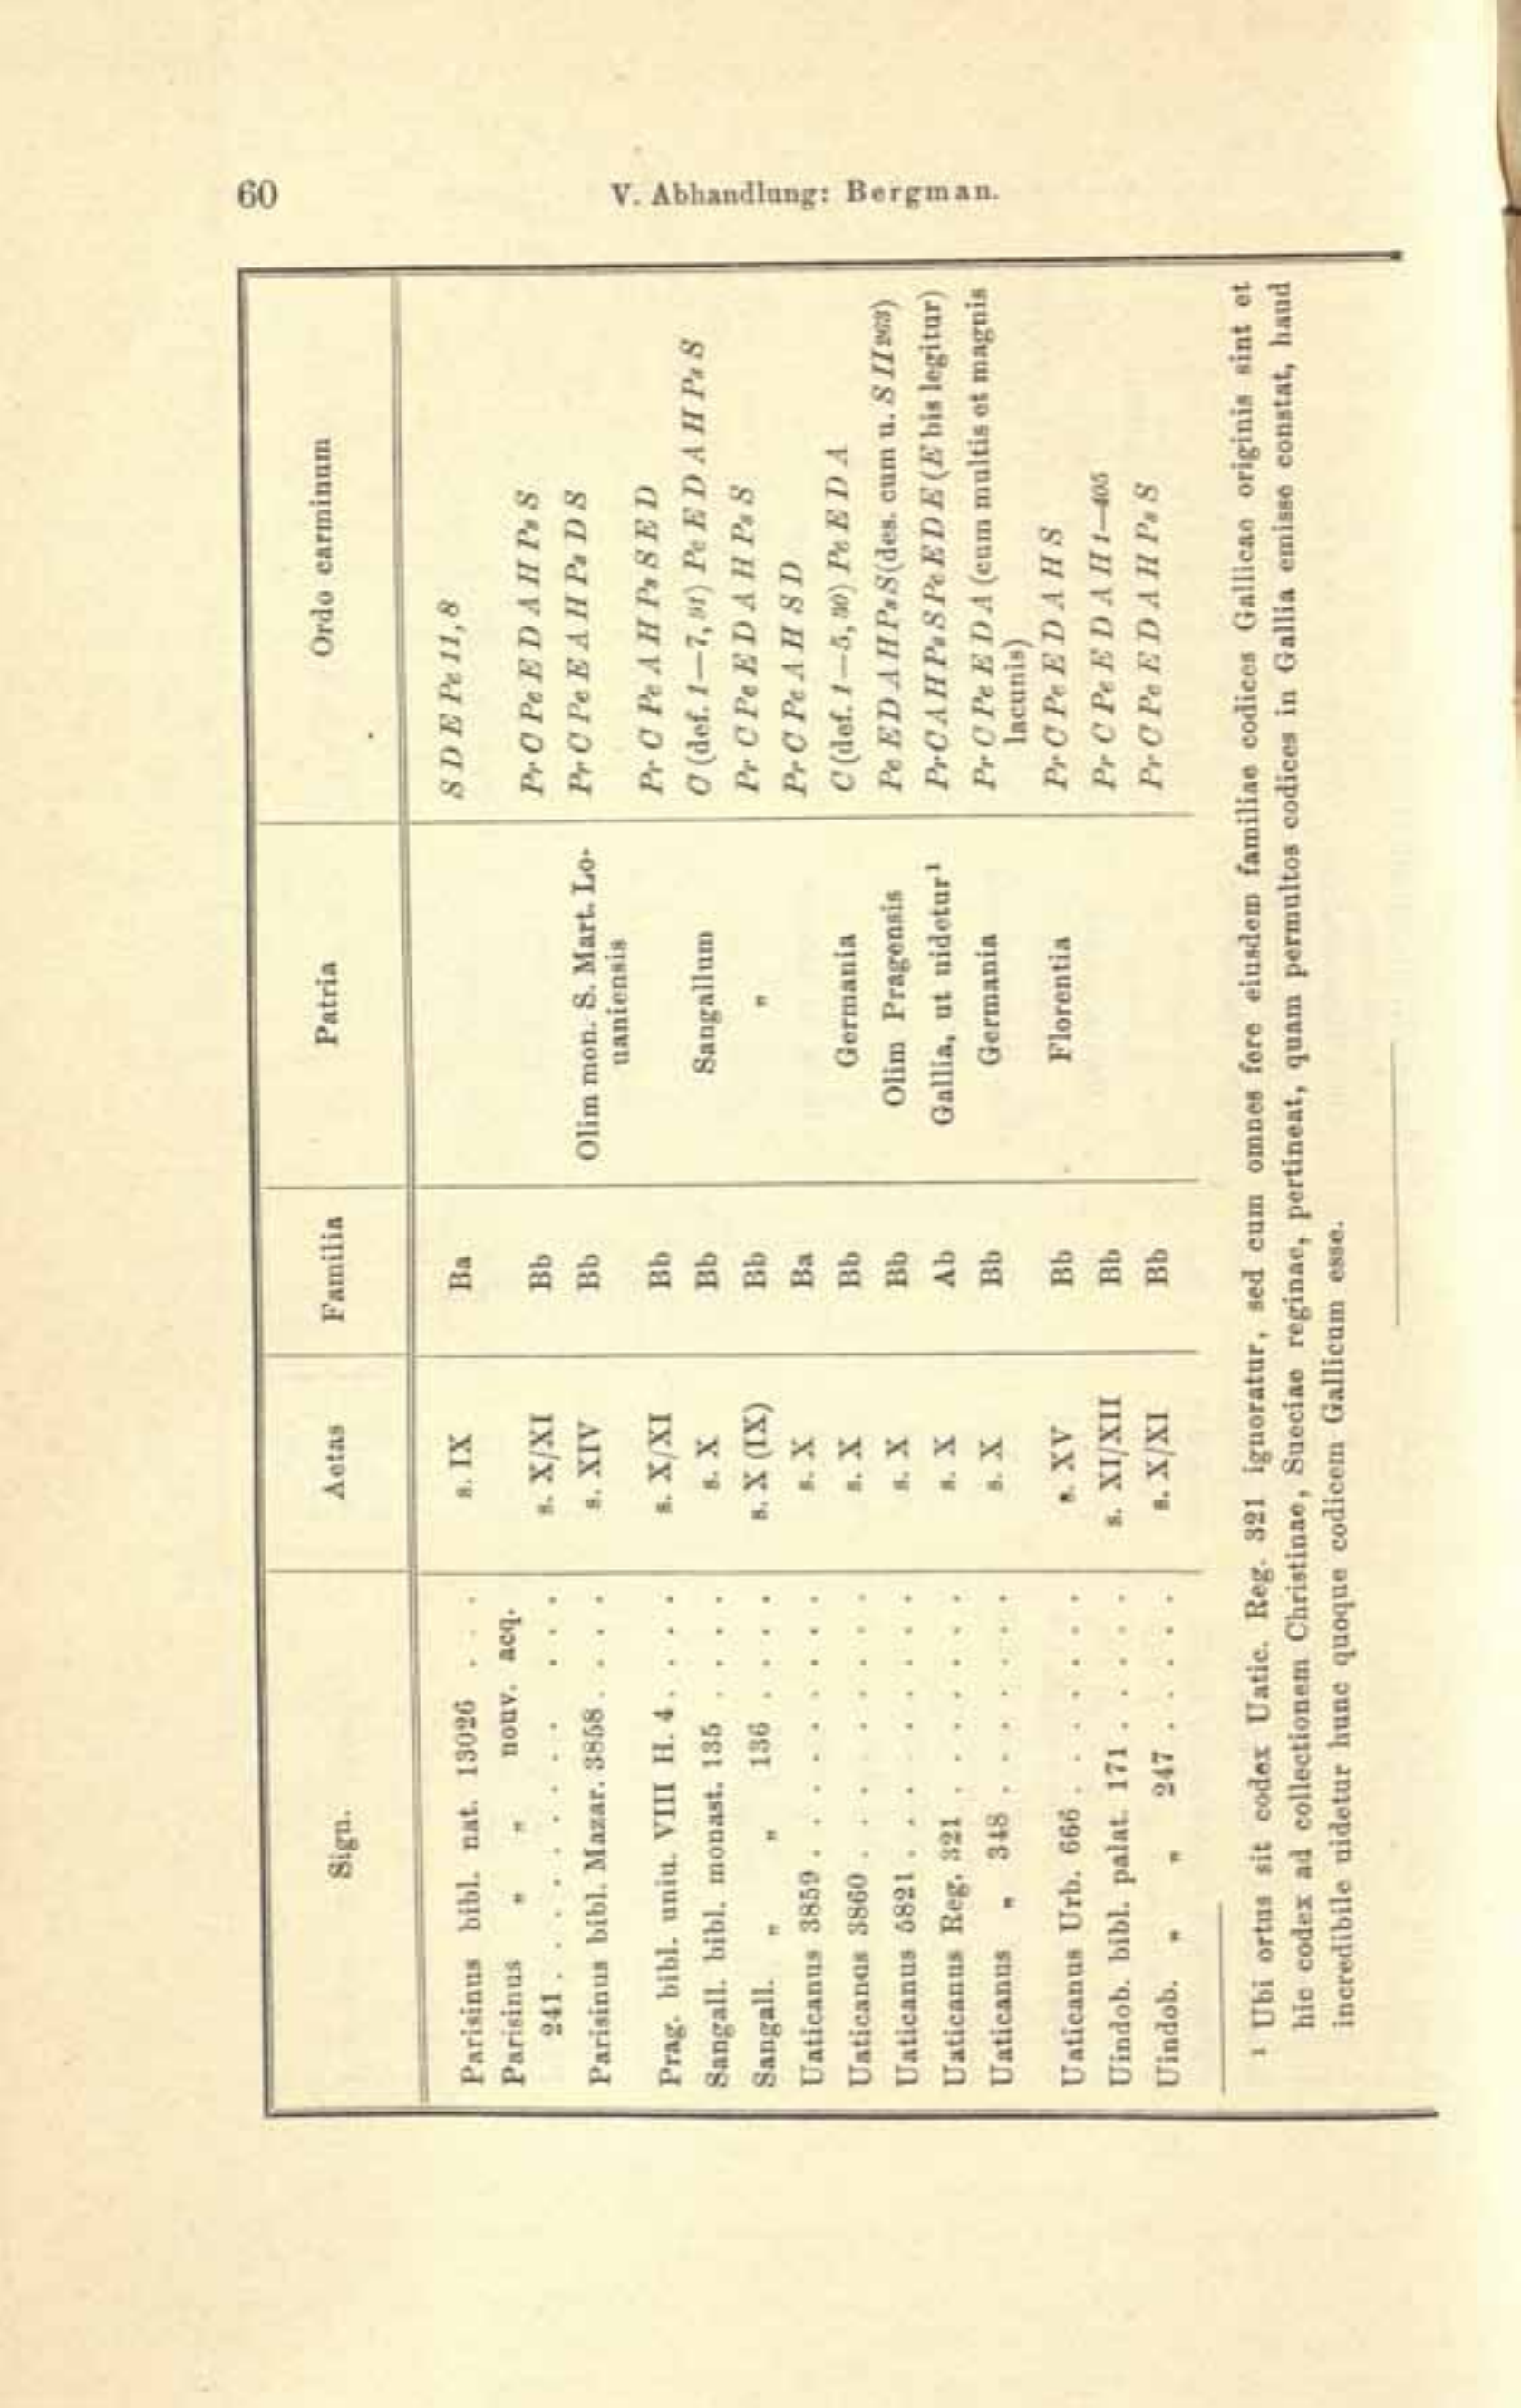 60
V. Abhandlung: Bergman.
Sign. Aetas Familia Patria Ordo carminum
Parisinus bibl. nat. 13026 . . . s. IX Ba S D E Pe 11, 8
Parisinus „ „ nouv. acq.
241 . . . . . . . . . s. X/XI Bb Pr C Pe E D A H Ps S
Parisinus bibl. Mazar. 3858 . . . . s. XIV Bb Olim mon. S. Mart. Lo- Pr C Pe E A H Ps D S
uaniensis
Prag. bibl. uniu. VIII H. 4 . . . . s. X/XI Bb Pr C Pe A H Ps S E D
Sangall. bibl. monast. 135 . . . . s. X Bb Sangallum C (def. 1—7, 91) Pe E D A H Ps S
Sangall. „ „ 136 . . . . s. X (IX) Bb „ Pr C Pe E D A H Ps S
Uaticanus 3859 . . . . . . . s. X Ba Pr C Pe A H S D
Uaticanus 3860 . . . . . . . s. X Bb Germania C (def. 1—5, 30) Pe E D A
Uaticanus 5821 . . . . . . . s. X Bb Olim Pragensis Pe E D A H Ps S (des. cum u. S II 263)
Uaticanus Reg. 321 . . . . . . s. X Ab Gallia, ut uidetur¹ Pr C A H Ps S Pe E D E (E bis legitur)
Uaticanus „ 348 . . . . . . s. X Bb Germania Pr C Pe E D A (cum multis et magnis
lacunis)
Uaticanus Urb. 666 . . . . . . s. XV Bb Florentia Pr C Pe E D A H S
Uindob. bibl. palat. 171 . . . . s. XI/XII Bb Pr C Pe E D A H 1—405
Uindob. „ „ 247 . . . . . s. X/XI Bb Pr C Pe E D A H Ps S
¹ Ubi ortus sit codex Uatic. Reg. 321 ignoratur, sed cum omnes fere eiusdem familiae codices Gallicae originis sint et
hic codex ad collectionem Christinae, Sueciae reginae, pertineat, quam permultos codices in Gallia emisse constat, haud
incredibile uidetur hunc quoque codicem Gallicum esse.